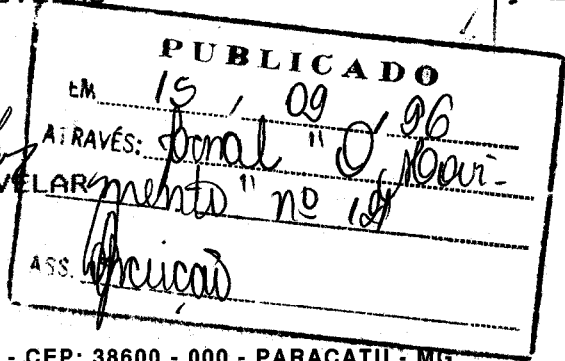 PUBLICADO
EM 15 / 09 / 96
ATRAVÉS: Jornal "O Movi-
VELAR
mento" nº
ASS.
- CEP: 38600 - 000 - PARACATU - MG